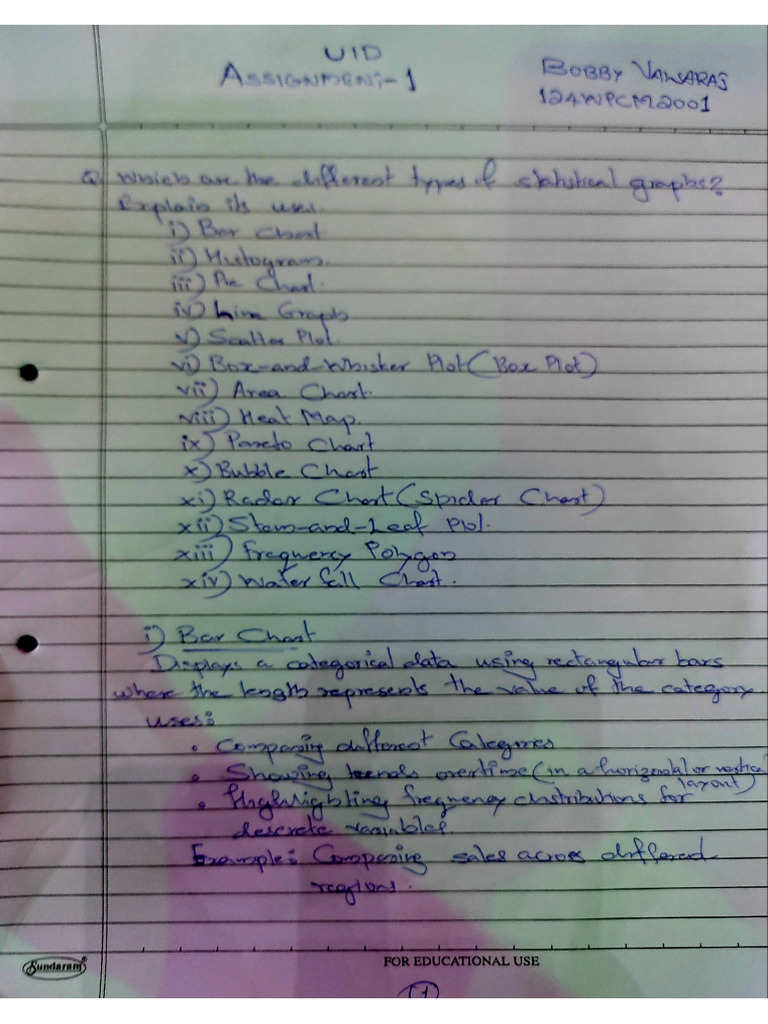 UID
ASSIGNMENT-1
BOBBY VAWSARAS
124WPCM2001
Q. Which are the different types of statistical graphs?
Explain its uses.
i) Bar Chart
ii) Histogram.
iii) Pie Chart.
iv) Line Graph
v) Scatter Plot.
vi) Box-and-Whisker Plot (Box Plot)
vii) Area Chart.
viii) Heat Map.
ix) Pareto Chart
x) Bubble Chart
xi) Radar Chart (Spider Chart)
xii) Stem-and-Leaf Plot.
xiii) Frequency Polygon
xiv) Water fall Chart.
i) Bar Chart
Displays a categorical data using rectangular bars
where the length represents the value of the category
uses:
• Comparing different Categories
• Showing trends overtime (in a horizontal or vertical
layout)
• Highlighting frequency distributions for
descrete variables.
Example: Comparing sales across different
regions.
Sundaram
FOR EDUCATIONAL USE
(1)